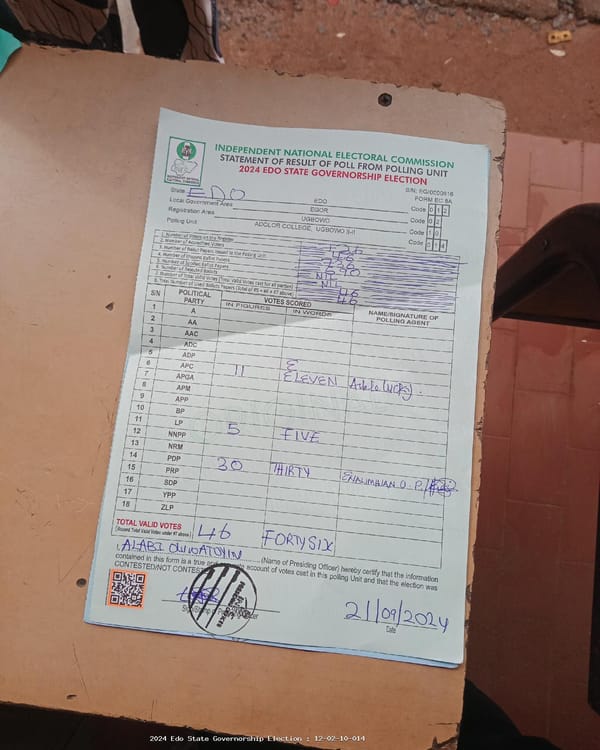 INDEPENDENT NATIONAL ELECTORAL COMMISSION
STATEMENT OF RESULT OF POLL FROM POLLING UNIT
2024 EDO STATE GOVERNORSHIP ELECTION
FORM EC 8A
State EDO EDO Code 12
Local Government Area EGOR Code 02
Registration Area UGBOWO Code 10
Polling Unit ADOLOR COLLEGE, UGBOWO II-I Code 014
1. Number of Voters on the Register
2. Number of Accredited Voters
3. Number of Ballot Papers Issued to the Polling Unit
4. Number of Unused Ballot Papers
5. Number of Spoiled Ballot Papers NIL
6. Number of Rejected Ballots NIL
7. Number of Total Valid Votes (Total Valid Votes cast for all parties) 46
8. Total Number of Used Ballots Papers (Total of #5 + #6 + #7 above) 46
S/N POLITICAL PARTY VOTES SCORED NAME/SIGNATURE OF POLLING AGENT
IN FIGURES IN WORDS
1 A
2 AA
3 AAC
4 ADC
5 ADP
6 APC 11 ELEVEN
7 APGA
8 APM
9 APP
10 BP
11 LP 5 FIVE
12 NNPP
13 NRM
14 PDP 30 THIRTY
15 PRP
16 SDP
17 YPP
18 ZLP
TOTAL VALID VOTES 46 FORTYSIX
I, ALABI OLUWATOYIN (Name of Presiding Officer) hereby certify that the information
contained in this form is a true and account of votes cast in this polling Unit and that the election was
CONTESTED/NOT CONTESTED
21/09/2024
Date
2024 Edo State Governorship Election : 12-02-10-014